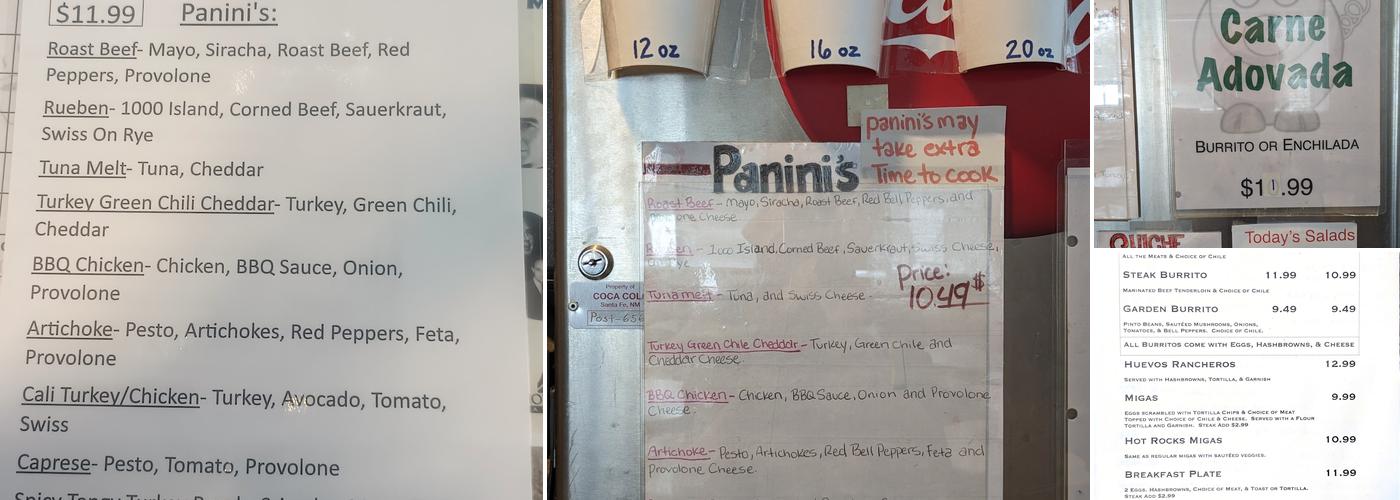 $11.99 Panini's:
Roast Beef- Mayo, Siracha, Roast Beef, Red
Peppers, Provolone
Rueben- 1000 Island, Corned Beef, Sauerkraut,
Swiss On Rye
Tuna Melt- Tuna, Cheddar
Turkey Green Chili Cheddar- Turkey, Green Chili,
Cheddar
BBQ Chicken- Chicken, BBQ Sauce, Onion,
Provolone
Artichoke- Pesto, Artichokes, Red Peppers, Feta,
Provolone
Cali Turkey/Chicken- Turkey, Avocado, Tomato,
Swiss
Caprese- Pesto, Tomato, Provolone
12 oz
16 oz
20 oz
panini's may
take extra
Time to cook
Panini's
Roast Beef - Mayo, Siracha, Roast Beef, Red Bell Peppers, and
Cheese
- 1000 Island, Corned Beef, Sauerkraut, Swiss Cheese,
Price:
10.49$
Tuna melt - Tuna, and Swiss Cheese -
Turkey Green Chile Cheddar - Turkey, Green chile and
Cheddar Cheese.
BBQ Chicken - Chicken, BBQ Sauce, Onion and Provolone
Cheese.
Artichoke - Pesto, Artichokes, Red Bell Peppers, Feta and
Provolone Cheese.
Property of
COCA COL
Santa Fe, NM
Post-656
Carne
Adovada
BURRITO OR ENCHILADA
$11.99
QUICHE
Today's Salads
ALL THE MEATS & CHOICE OF CHILE
STEAK BURRITO 11.99 10.99
MARINATED BEEF TENDERLOIN & CHOICE OF CHILE
GARDEN BURRITO 9.49 9.49
PINTO BEANS, SAUTÉED MUSHROOMS, ONIONS,
TOMATOES, & BELL PEPPERS. CHOICE OF CHILE.
ALL BURRITOS COME WITH EGGS, HASHBROWNS, & CHEESE
HUEVOS RANCHEROS 12.99
SERVED WITH HASHBROWNS, TORTILLA, & GARNISH
MIGAS 9.99
EGGS SCRAMBLED WITH TORTILLA CHIPS & CHOICE OF MEAT
TOPPED WITH CHOICE OF CHILE & CHEESE. SERVED WITH A FLOUR
TORTILLA AND GARNISH. STEAK ADD $2.99
HOT ROCKS MIGAS 10.99
SAME AS REGULAR MIGAS WITH SAUTÉED VEGGIES.
BREAKFAST PLATE 11.99
2 EGGS, HASHBROWNS, CHOICE OF MEAT, & TOAST OR TORTILLA.
STEAK ADD $2.99